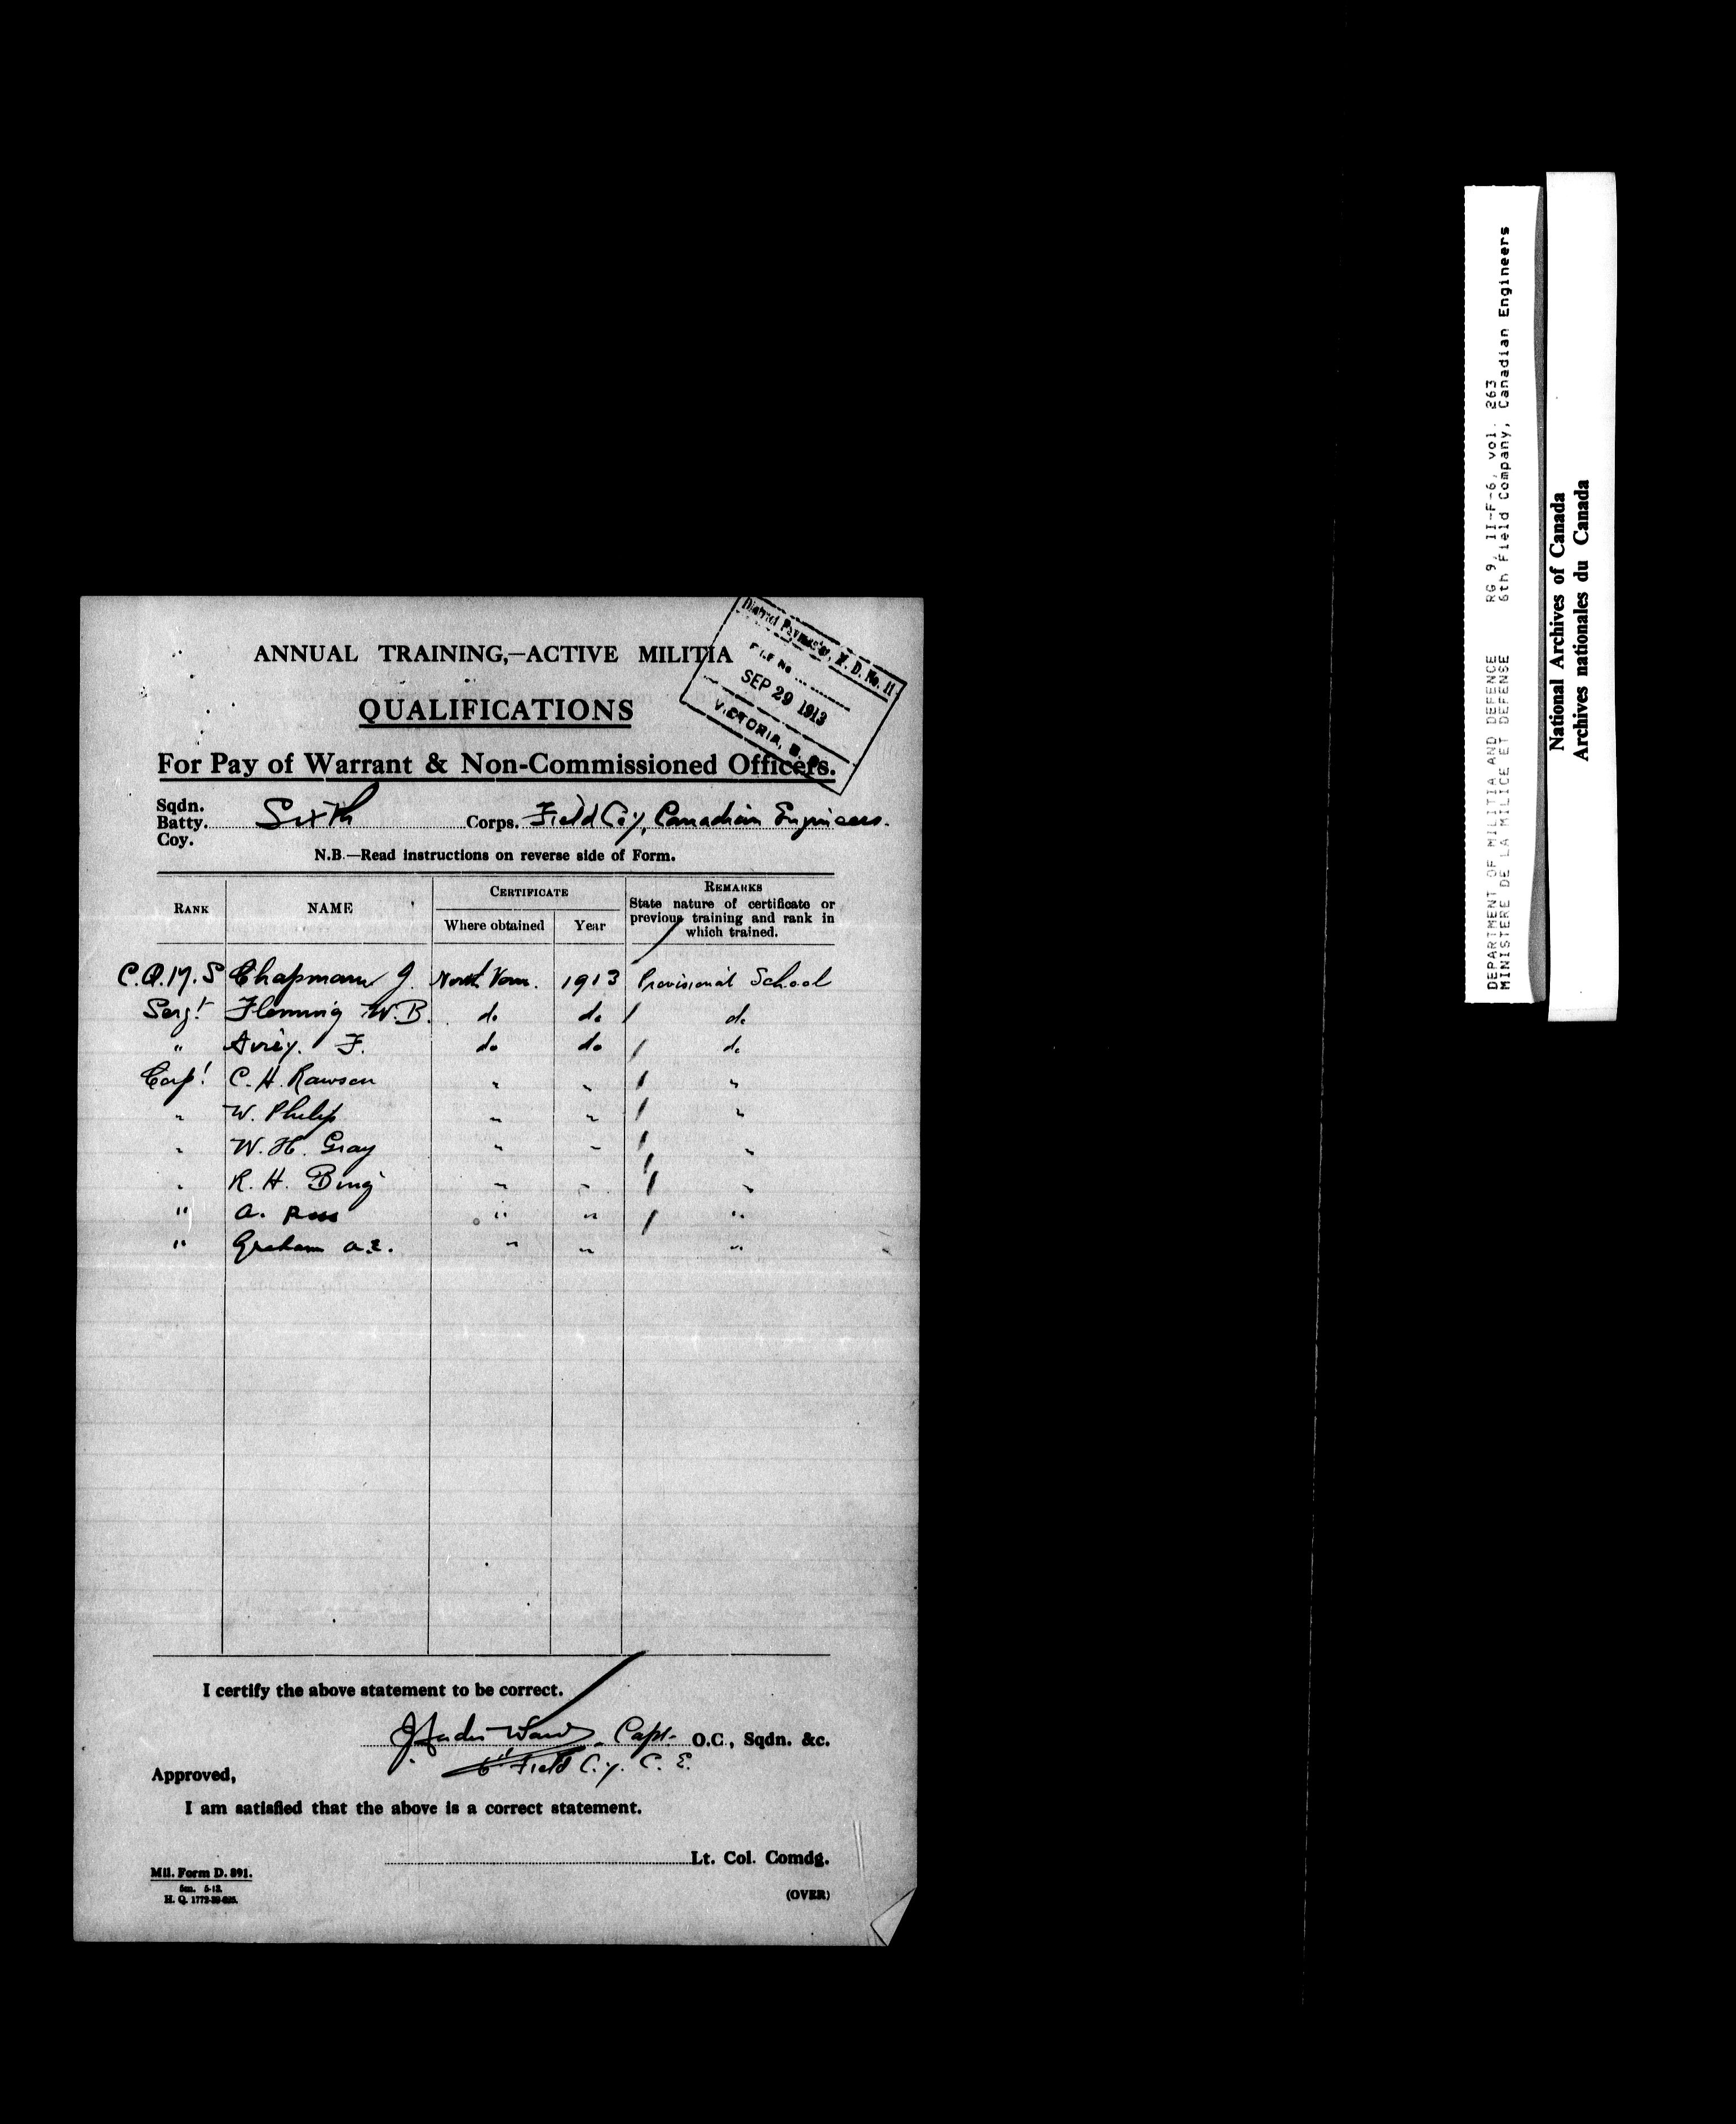 ANNUAL TRAINING,—ACTIVE MILITIA
District Paymaster, M. D. No. 11
FILE No
SEP 29 1913
VICTORIA, B. C.
QUALIFICATIONS
For Pay of Warrant & Non-Commissioned Officers.
Sqdn.
Batty. Sixth Corps. Field Coy, Canadian Engineers.
Coy.
N.B.—Read instructions on reverse side of Form.
RANK NAME CERTIFICATE Where obtained Year REMARKS State nature of certificate or previous training and rank in which trained.
C.Q.M.S Chapman J. North Vanr. 1913 Provisional School
Sergt Fleming W.B. do do do
" F. do do do
Corpl C. H. Rawson " " "
" W. Philip " " "
" W. H. Gray " " "
" R. H. Bing " " "
" A. Ross " " "
" Graham A.E. " " "
I certify the above statement to be correct.
Capt. O.C., Sqdn. &c.
6th Field Coy. C. E.
Approved,
I am satisfied that the above is a correct statement.
Lt. Col. Comdg.
Mil. Form D. 891.
H. Q. 1772-39-
(OVER)
DEPARTMENT OF MILITIA AND DEFENCE RG 9, II-F-6, vol. 263
MINISTERE DE LA MILICE ET DEFENSE 6th Field Company, Canadian Engineers
National Archives of Canada
Archives nationales du Canada